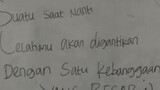 Suatu saat nanti
Lelahmu akan digantikan
Dengan Satu Kebanggaan
YANG BESAR